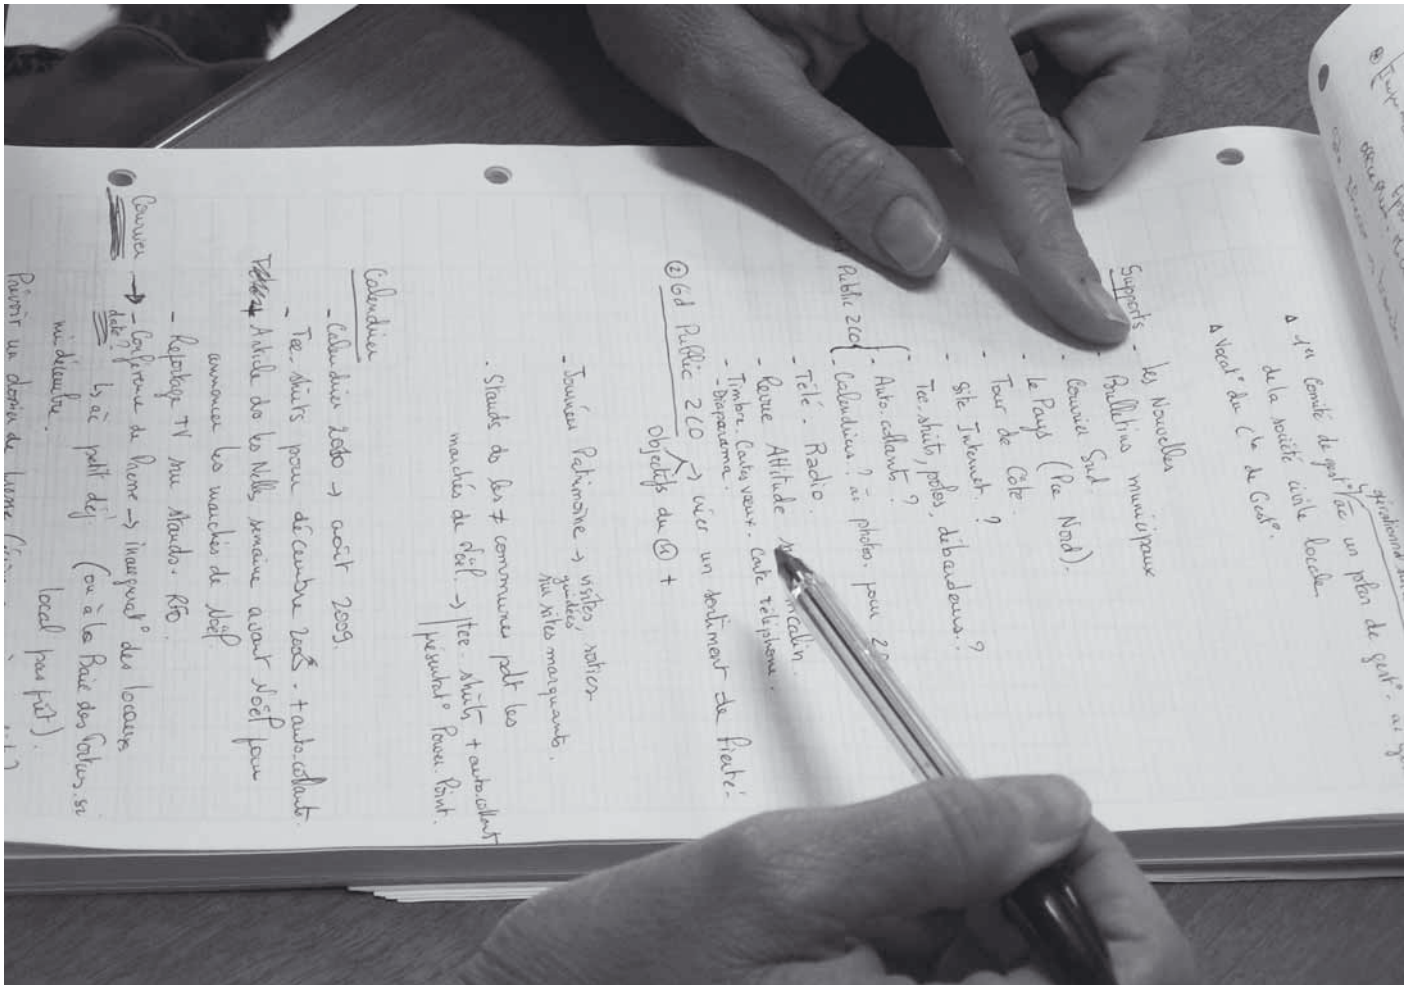 opérationnel
Δ 1er Comité de gest° / ac un plan de gest°
de la société civile locale
Δ Vocat° du Cté de Gest°.
Supports - Les Nouvelles
- Bulletins municipaux
- Courrier Sud.
- Le Pays (Pce Nord).
- Tour de Côte
- Site Internet ?
- Tee-shirts, polos, débardeurs ?
- Auto-collants ?
Public ZCO - Calendriers ? ac photos pour
- Télé. Radio.
- Revue Attitude
- Timbre. Cartes vœux. Carte téléphone.
- Diaporama.
② Gd Public ZCO → créer un sentiment de fierté
Objectifs du ① +
- Journée Patrimoine → visites, sorties
guidées
sur sites marquants.
- Stands ds les ≠ communes pdt les
marchés de Noël → tee-shirts + auto.collant
présentat° Power Point.
Calendrier
- Calendrier 2010 → août 2009.
- Tee-shirts pour décembre 2008 + auto.collants.
Article ds les Nelles semaine avant Noël pour
annoncer les marchés de Noël.
- Reportage TV sur stands. RFO
Courrier → - Conférence de Presse → inaugurat° des locaux
date ? ac petit déj (ou à la Baie des Tortues si
mi décembre. local pas prêt).
Prévoir un dossier de Presse